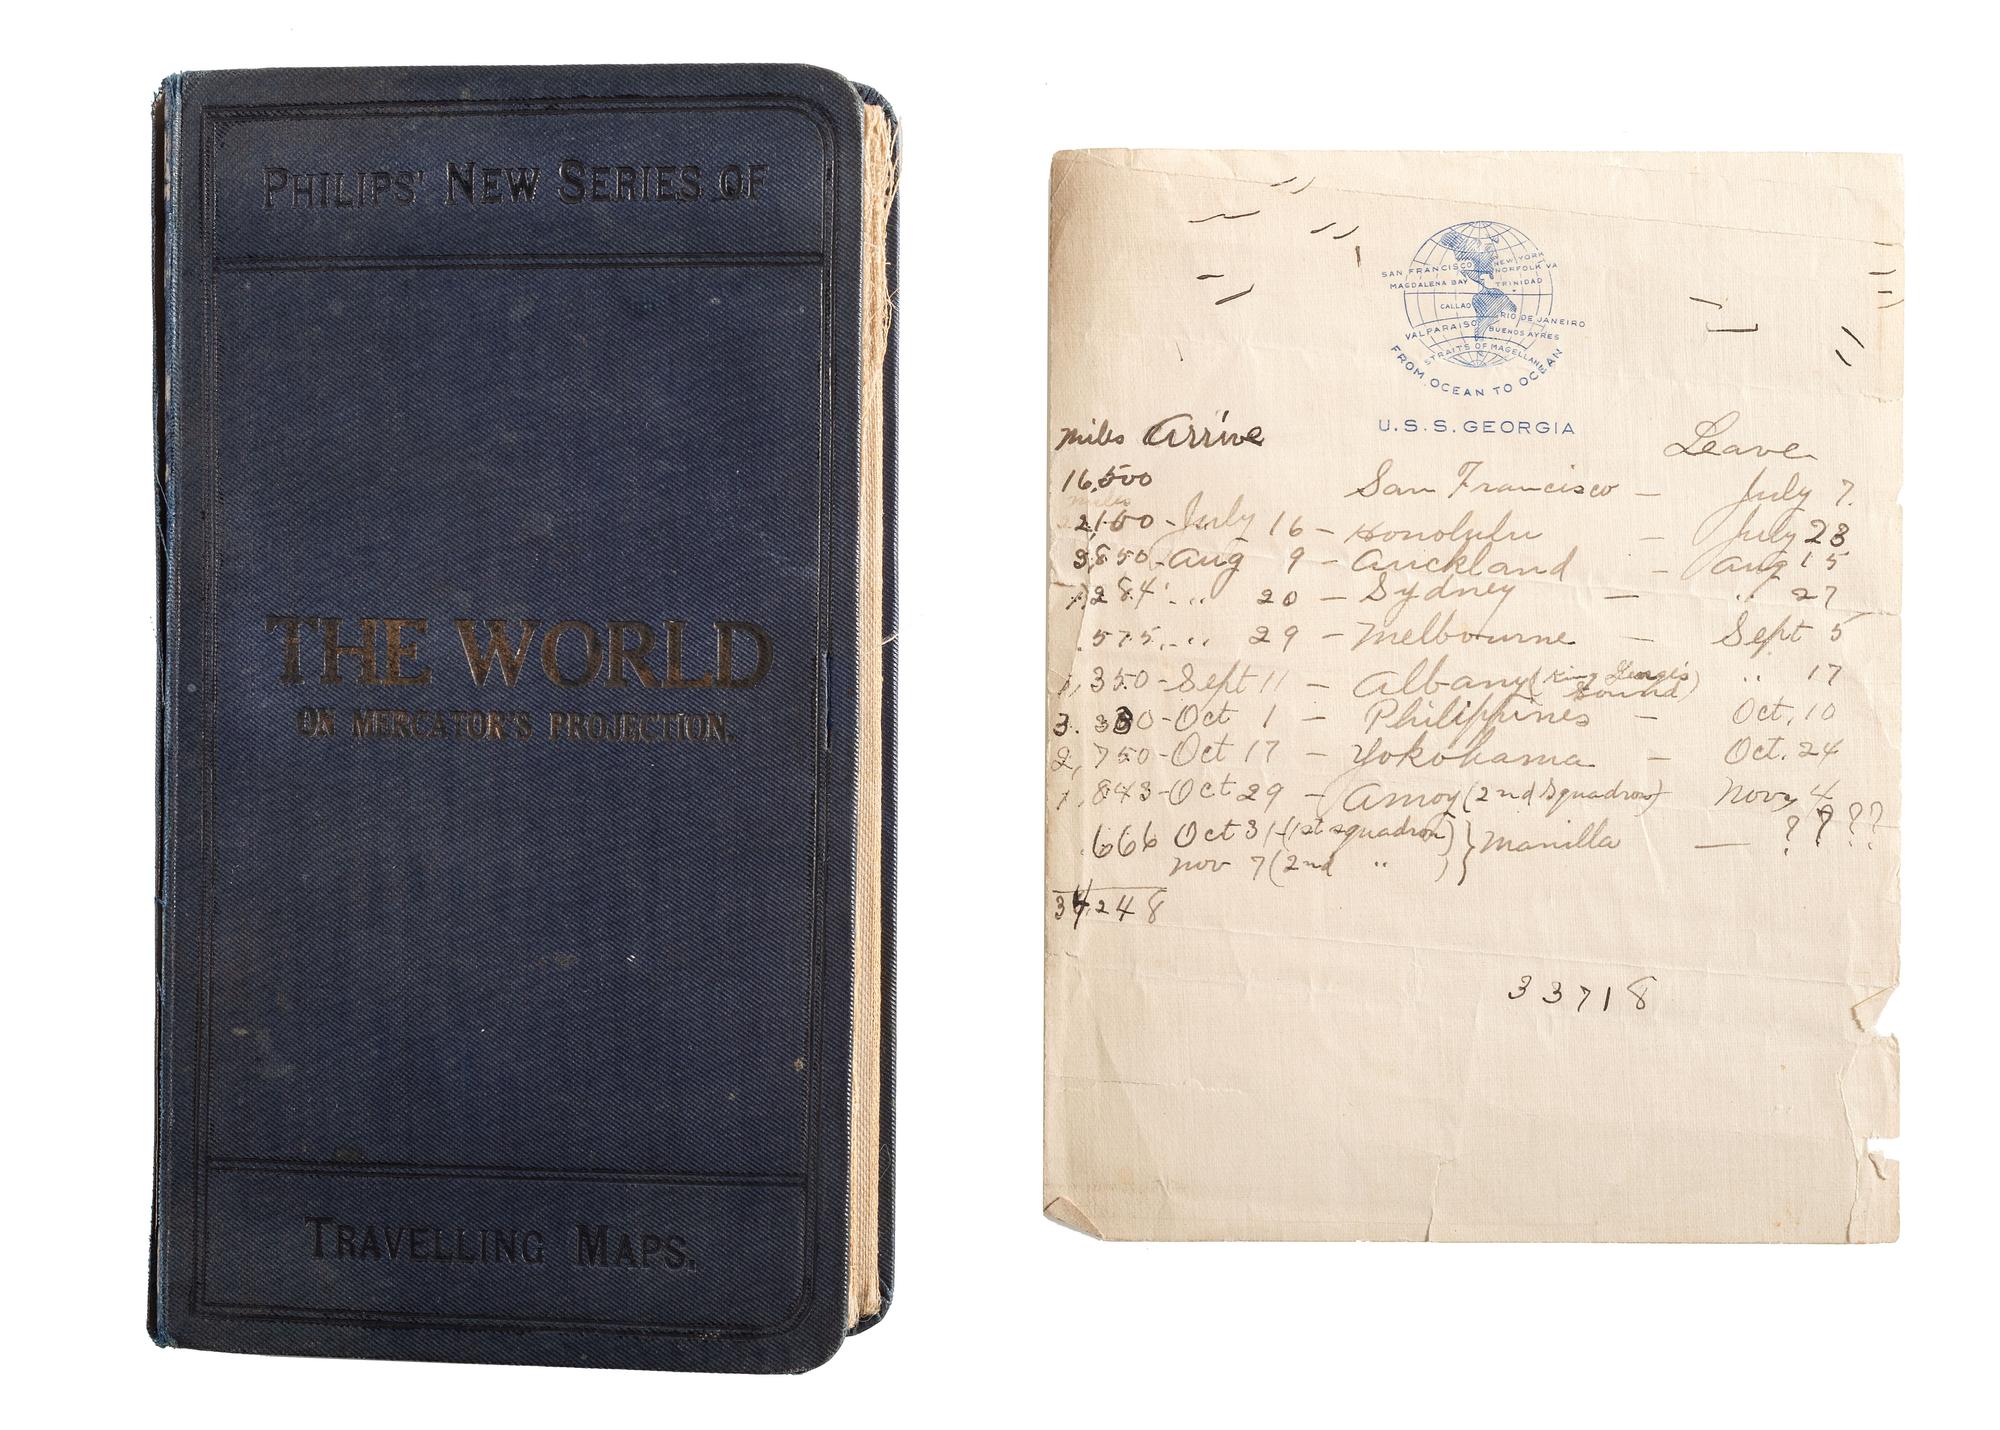 PHILIPS' NEW SERIES OF
THE WORLD
ON MERCATOR'S PROJECTION.
TRAVELLING MAPS.
SAN FRANCISCO NEW YORK
NORFOLK VA
MAGDALENA BAY TRINIDAD
CALLAO
RIO DE JANEIRO
VALPARAISO BUENOS AYRES
STRAITS OF MAGELLAN
FROM OCEAN TO OCEAN
U.S.S. GEORGIA
Miles Arrive Leave
16,500 San Francisco — July 7.
miles
2,100 - July 16 - Honolulu — July 23
3,850 - Aug 9 - Auckland — Aug 15
1,284 - " 20 - Sydney — " 27
575 - " 29 - Melbourne — Sept 5
1,350 - Sept 11 - Albany (King George's Sound) " 17
3.330 - Oct 1 - Philippines — Oct, 10
2,750 - Oct 17 - Yokohama — Oct. 24
1,843 - Oct 29 - Amoy (2nd Squadron) Nov 4
666 Oct 31 - (1st squadron) } Manilla — ? ? ? ?
Nov 7 (2nd " )
34,248
33718